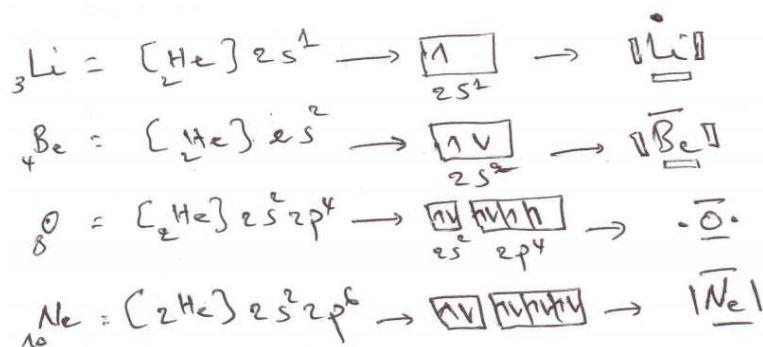 ₃Li = [₂He] 2s¹ → [↑] 2s¹ → Li
₄Be = [₂He] 2s² → [↑↓] 2s² → Be
₈O = [₂He] 2s² 2p⁴ → [↑↓] [↑↓|↑|↑] 2s² 2p⁴ → ·O·
₁₀Ne = [₂He] 2s² 2p⁶ → [↑↓] [↑↓|↑↓|↑↓] → |Ne|